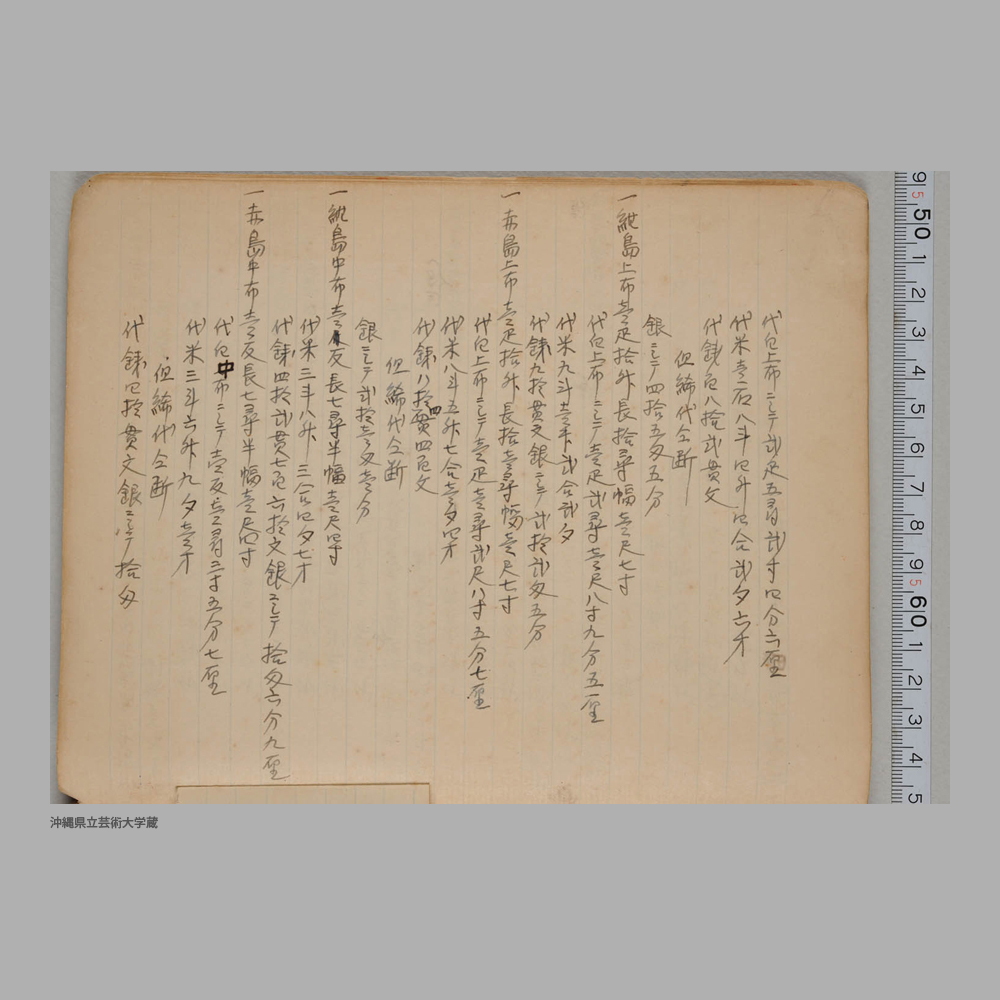 代白上布ニシテ弐疋五尋弐寸四分六厘
代米壱石八斗四升四合弐夕六才
代銭百八拾弐貫文
但綛代仝断
銀ニシテ四拾五匁五分
一紺島上布壱疋拾升長拾尋幅壱尺七寸
代白上布ニシテ壱疋弐尋壱尺八寸九分五厘
代米九斗壱升弐合弐夕
代銭九拾貫文銀ニシテ弐拾弐匁五分
一赤島上布壱疋拾升長拾壱尋幅壱尺七寸
代白上布ニシテ壱疋壱尋弐尺八寸五分七厘
代米八斗五升七合壱夕四才
代銭八拾四貫四百文
但綛代仝断
銀ニシテ弐拾壱匁壱分
一紺島中布壱反長七尋半幅壱尺四寸
代米三斗八升三合四夕七才
代銭四拾弐貫七百六拾文銀ニシテ拾匁六分九厘
一赤島中布壱反長七尋半幅壱尺四寸
代白中布ニシテ壱反壱尋二寸五分七厘
代米三斗六升九夕壱才
但綛代仝断
代銭四拾貫文銀ニシテ拾匁
9 5 50 1 2 3 4 5 6 7 8 9 5 60 1 2 3 4 5
沖縄県立芸術大学蔵